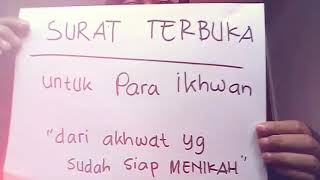 SURAT TERBUKA
untuk Para Ikhwan
"dari akhwat yg
sudah siap MENIKAH"